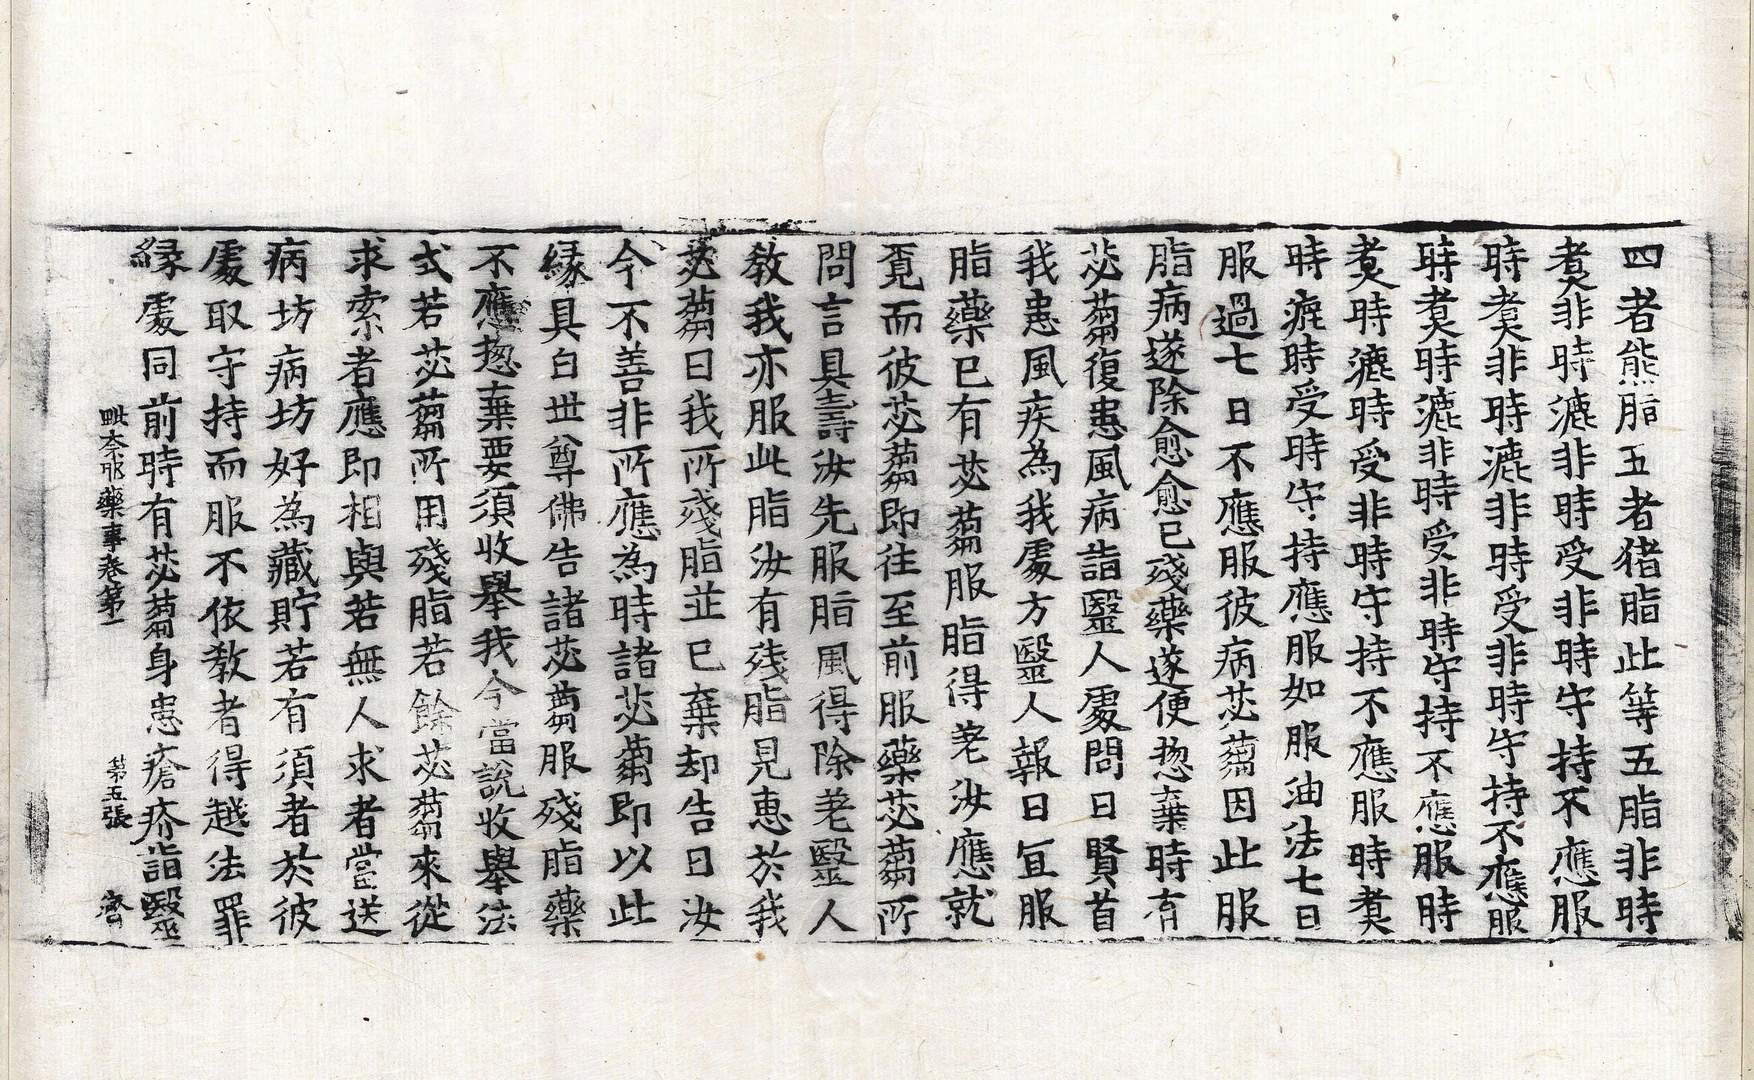 四者熊脂五者猪脂此等五脂非時
煑非時漉非時受非時守持不應服
時煑非時漉非時受非時守持不應服
時煑時漉非時受非時守持不應服時
煑時漉時受非時守持不應服時煑
時漉時受時守持應服如服油法七日
服過七日不應服彼病苾蒭因此服
脂病遂除愈愈已殘藥遂便惣棄時有
苾蒭復患風病詣醫人處問曰賢首
我患風疾為我處方醫人報曰宜服
脂藥已有苾蒭服脂得差汝應就
覓而彼苾蒭即往至前服藥苾蒭所
問言具壽汝先服脂風得除差醫人
教我亦服此脂汝有殘脂見惠於我
苾蒭曰我所殘脂並已棄却告曰汝
今不善非所應為時諸苾蒭即以此
緣具白世尊佛告諸苾蒭服殘脂藥
不應惣棄要須收舉我今當說收舉法
式若苾蒭所用殘脂若餘苾蒭來從
求索者應即相與若無人求者當送
病坊病坊好為藏貯若有須者於彼
處取守持而服不依教者得越法罪
緣處同前時有苾蒭身患瘡疥詣醫
毗奈耶藥事卷第一 第五張 濟